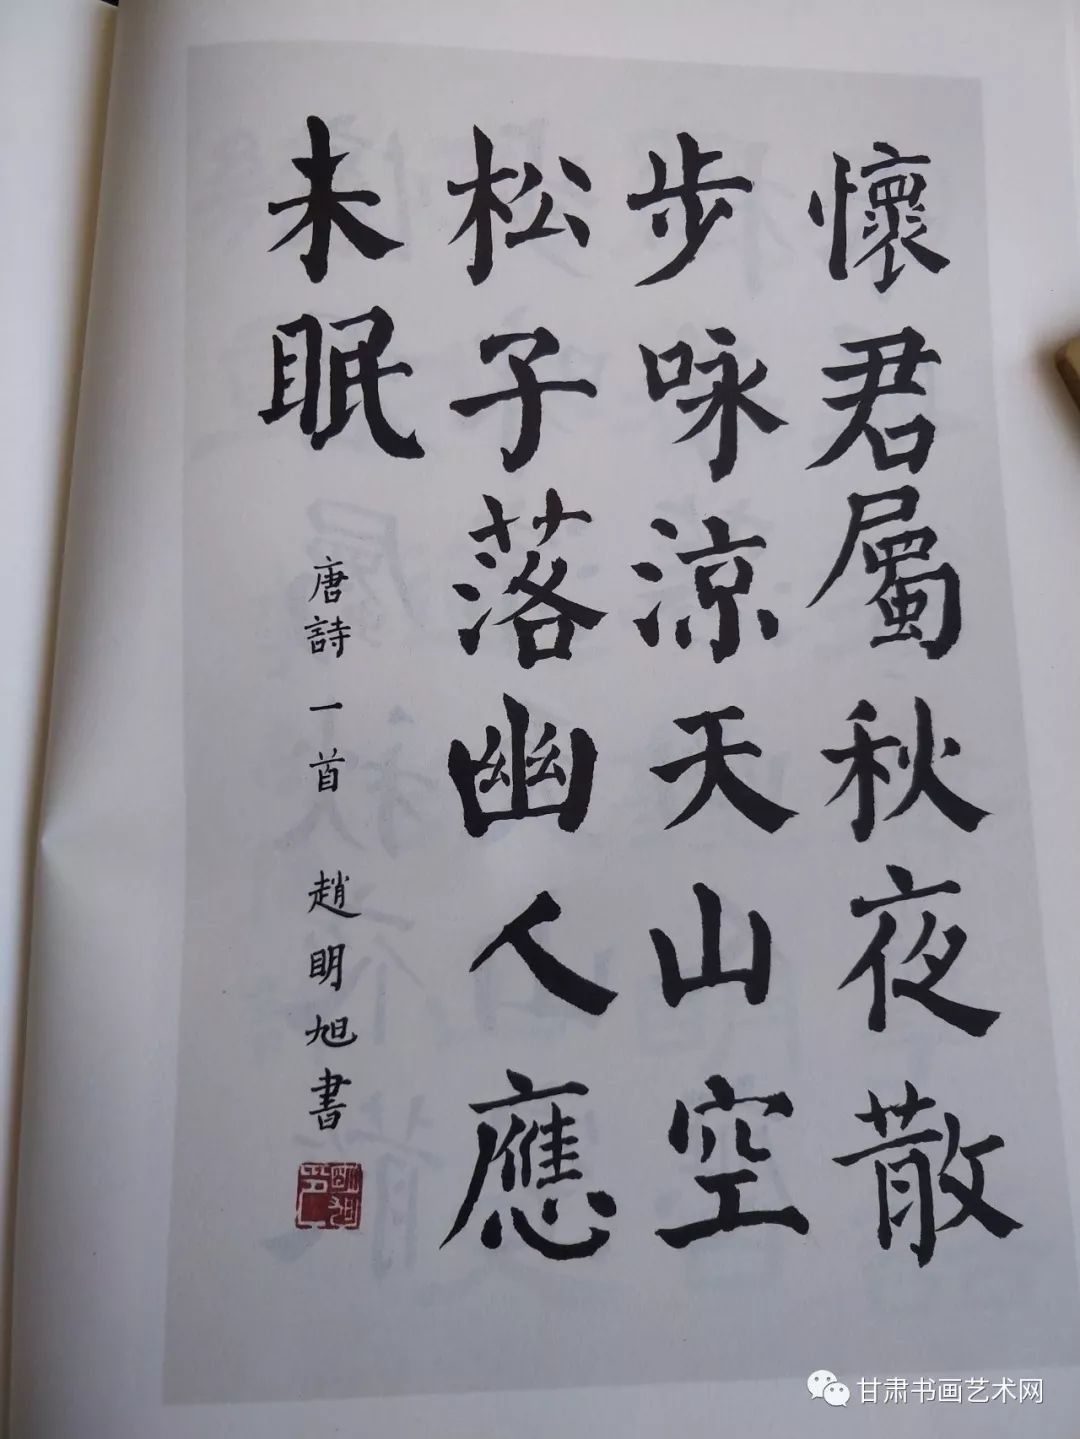 懷君屬秋夜散
步咏涼天山空
松子落幽人應
未眠
唐詩一首 趙明旭書
明旭印
甘肃书画艺术网